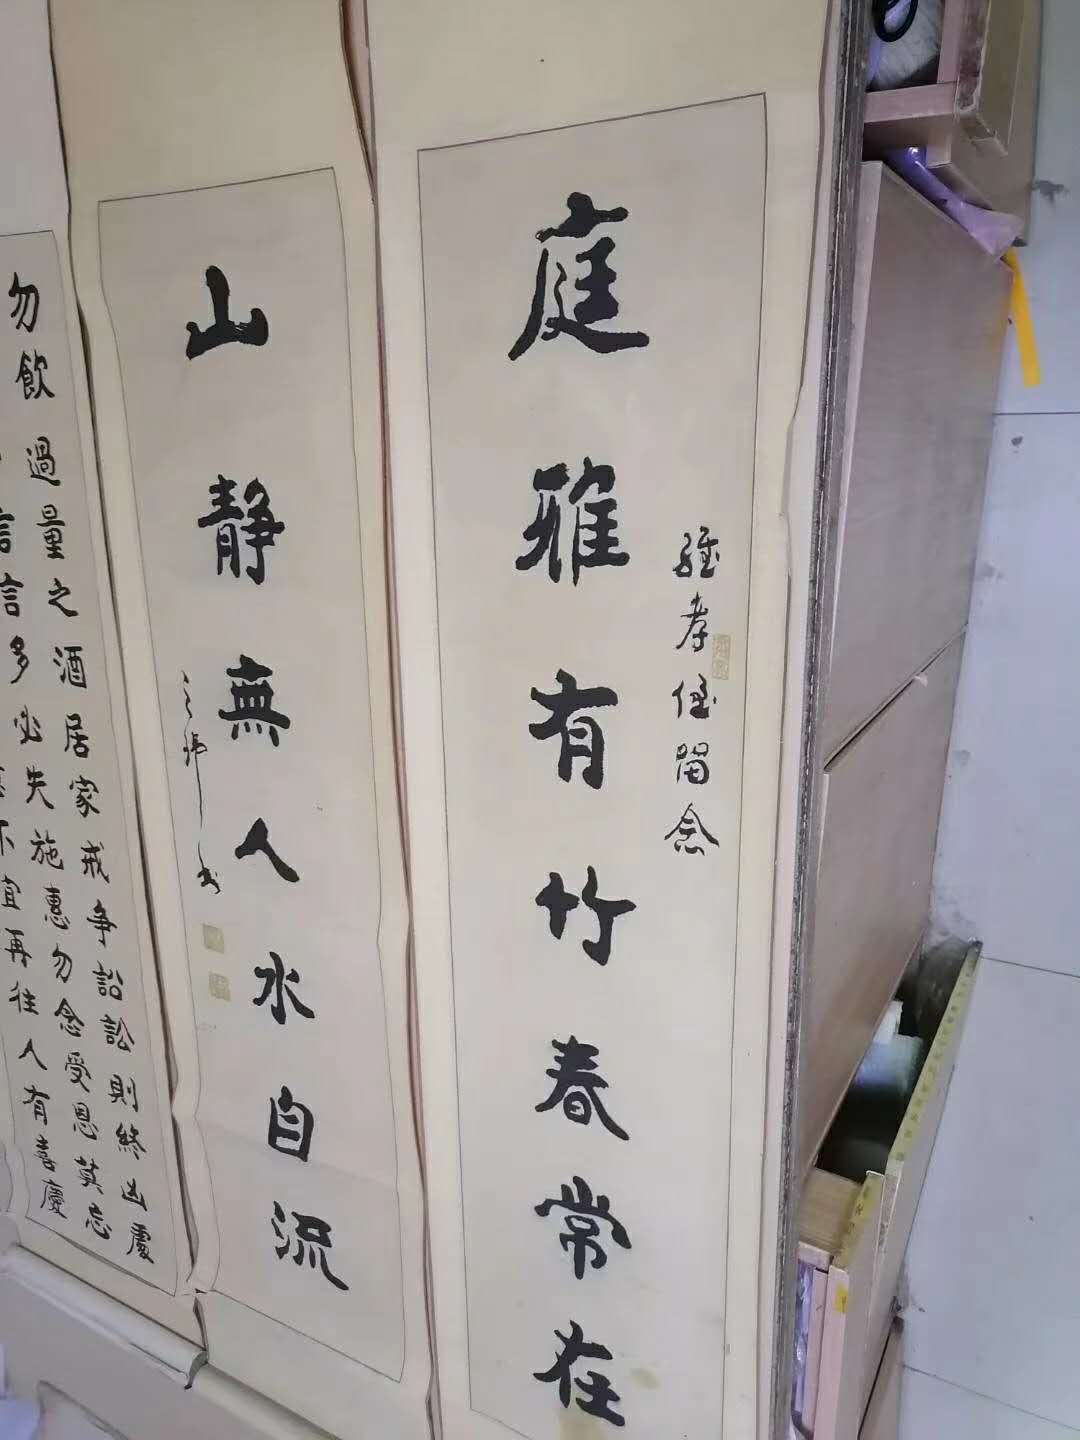 庭雅有竹春常在
孝侄留念
山静無人水自流
勿飲過量之酒居家戒争訟訟則終凶處
言多必失施惠勿念受恩莫忘
不宜再往人有喜慶